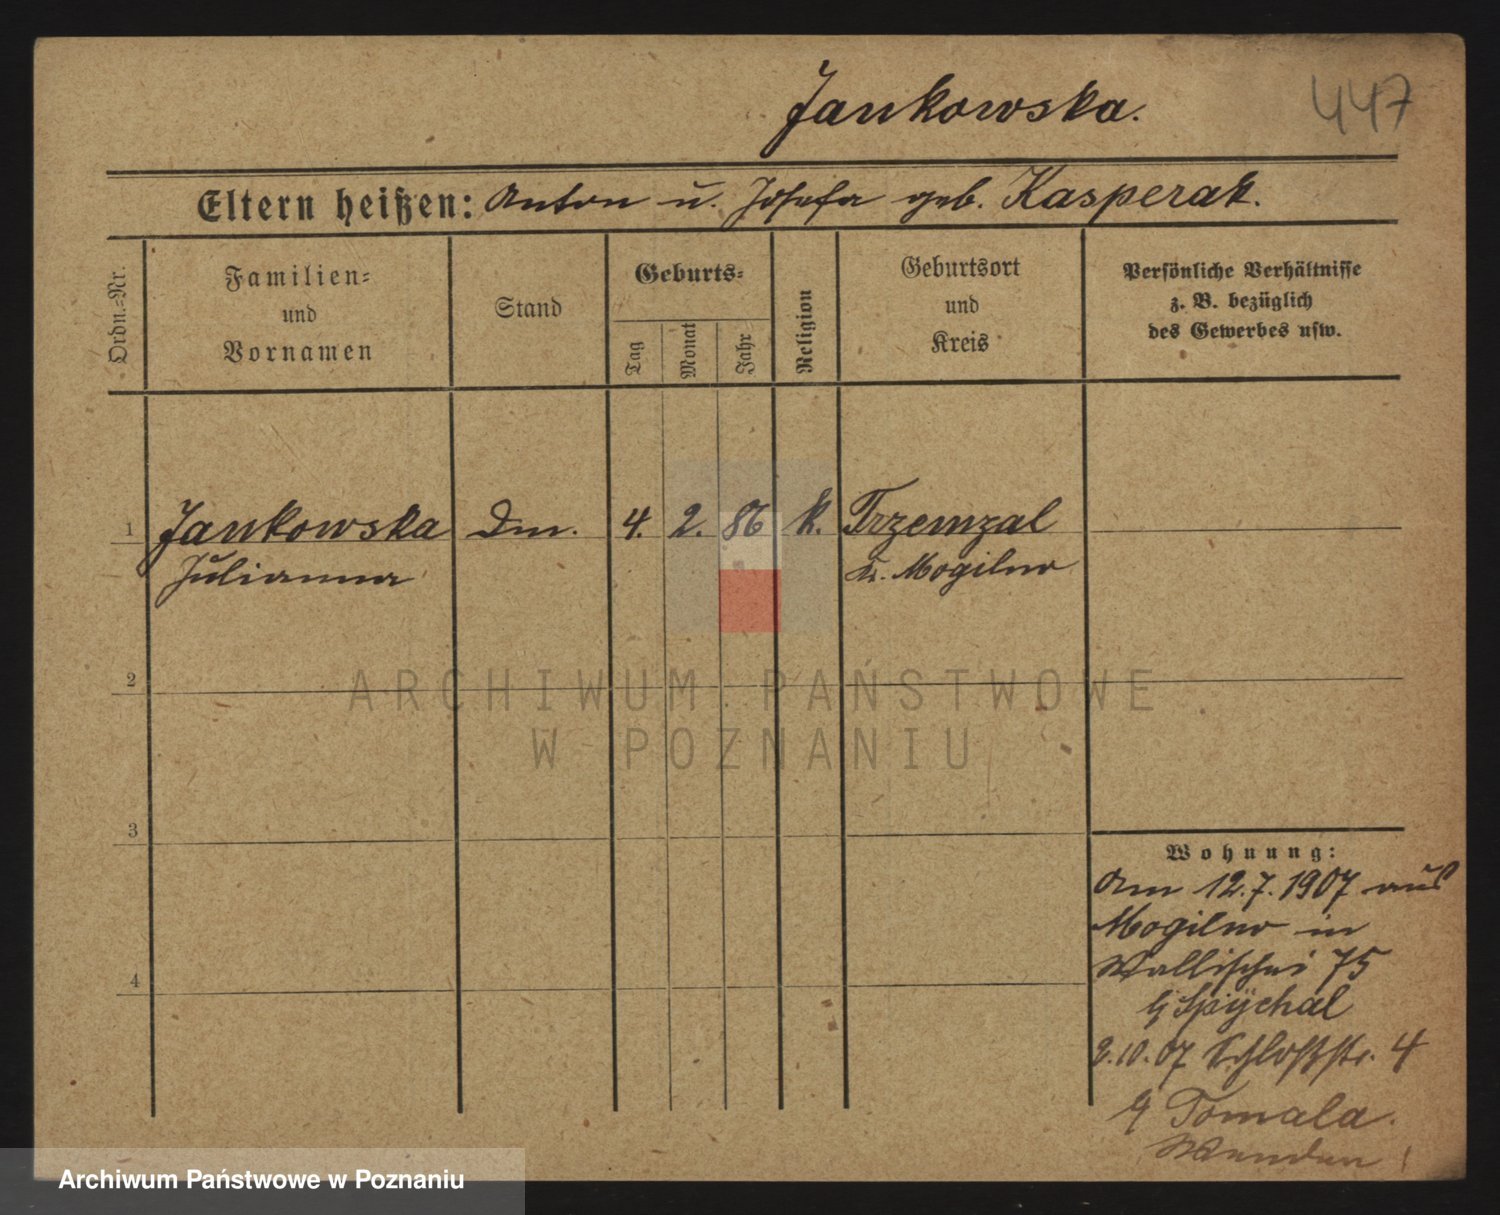 Jankowska.
447
Eltern heißen: Anton u. Josefa geb. Kasperak.
Ordn.-Nr.
Familien-
und
Vornamen
Stand
Geburts-
Tag
Monat
Jahr
Religion
Geburtsort
und
Kreis
Persönliche Verhältnisse
z. B. bezüglich
des Gewerbes usw.
1 Jankowska Dm. 4. 2. 86 k. Trzemzal
Julianna Kr. Mogilno
2
ARCHIWUM PAŃSTWOWE
W POZNANIU
3
Wohnung:
Am 12.7.1907 aus
Mogilno in
Wallischei 75
Spychal
4
2.10.07 Schloßstr. 4
Tomala.
Wenden!
Archiwum Państwowe w Poznaniu